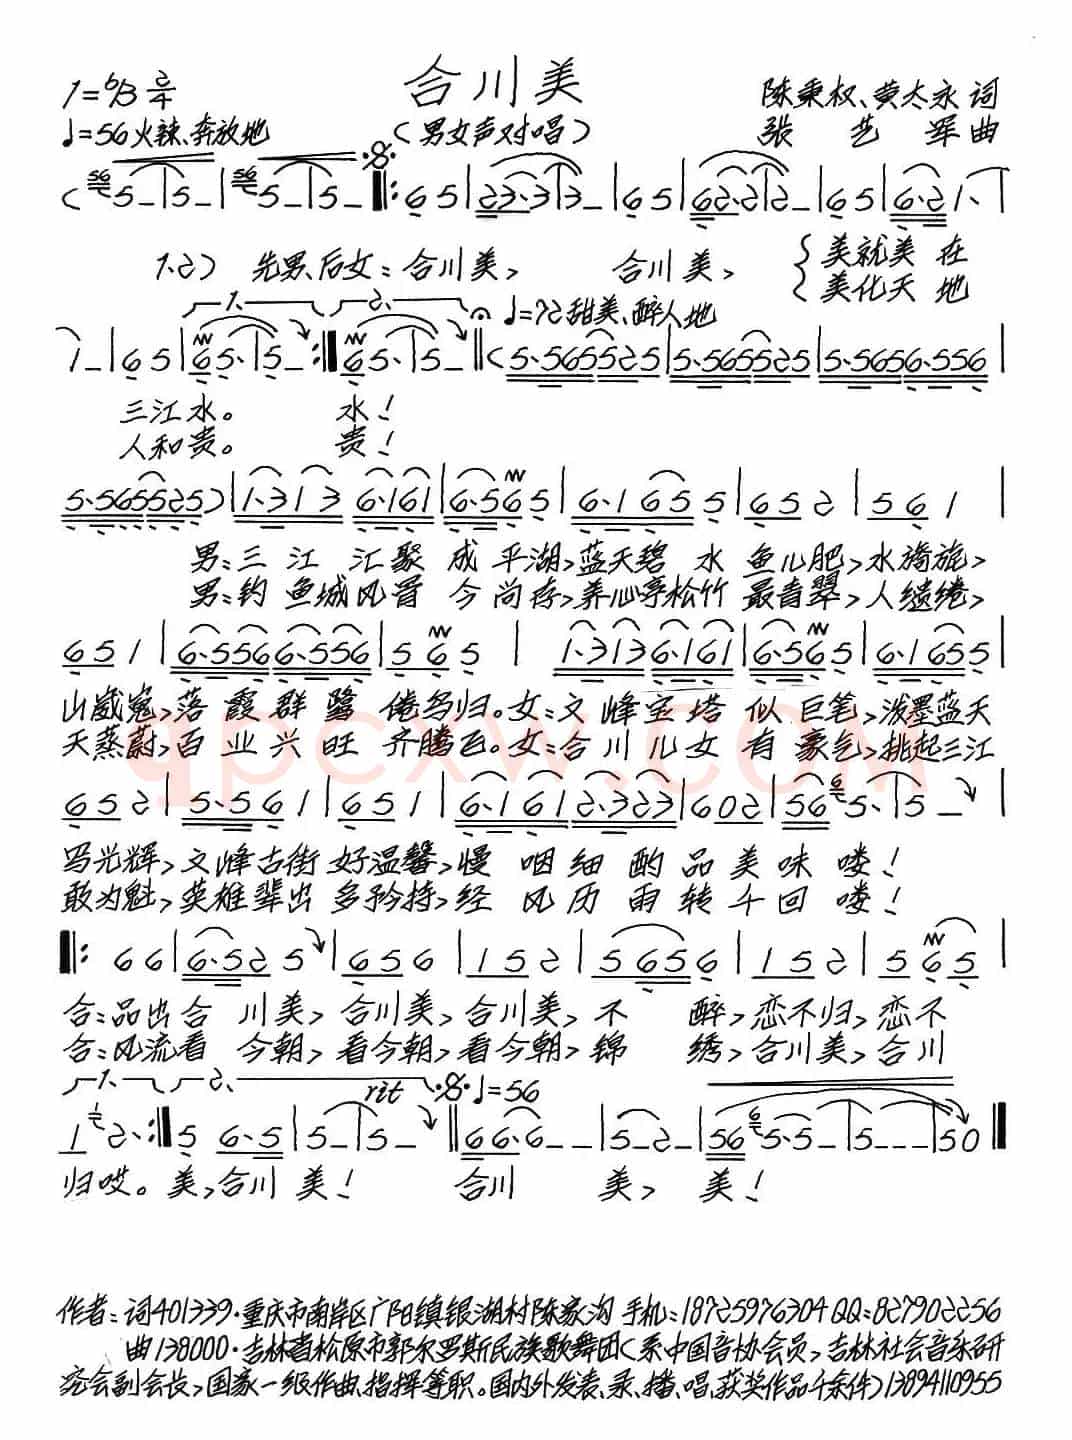 合川美
1=♭B 2/4
陈秉权、黄太永 词
♩=56 火辣、奔放地
(男女声对唱)
张艺军 曲
1.2) 先男、后女：合川美， 合川美， 美就美 在
美化天 地
1. 2. ♩=72 甜美、醉人地
三江水。 水！
人和贵。 贵！
男：三 江 汇聚 成 平湖，蓝天碧 水 鱼儿肥，水旖旎，
男：钓 鱼城风 今 尚存，养心亭松竹 最青翠，人缱绻，
6 5 1 | 6·5 5 6 6·5 5 6 | 5 6 5 | 1·3 1 3 6·1 6 1 | 6·5 6 5 | 6·1 6 5 5 |
山崴嵬，落 霞 群 鹭 倦鸟归。女：文 峰 宝 塔 似 巨笔，泼墨蓝天
天蒸蔚，百 业 兴 旺 齐腾飞。女：合 川 儿 女 有 豪气，挑起三江
qpcxw.com
写光辉，文峰古街 好温馨，慢 咽 细 酌 品 美 味 喽！
敢为魁，英雄辈出 多矜持，经 风 历 雨 转 千 回 喽！
6 6 | 6·5 2 5 | 6 5 6 | 1 5 2 | 5 6 5 6 | 1 5 2 | 5 6 5 |
合：品出合 川美，合川美，合川美，不 醉，恋不归，恋不
合：风流看 今朝，看今朝，看今朝，锦 绣，合川美，合川
1. 2. rit ♩=56
归哎。美，合川 美！ 合川 美， 美！
作者：词401339·重庆市南岸区广阳镇银湖村陈家沟 手机：18725976304 QQ：827902256
曲138000·吉林省松原市郭尔罗斯民族歌舞团(系中国音协会员，吉林社会音乐研
究会副会长，国家一级作曲、指挥等职。国内外发表、录、播、唱、获奖作品千余件)13894110955